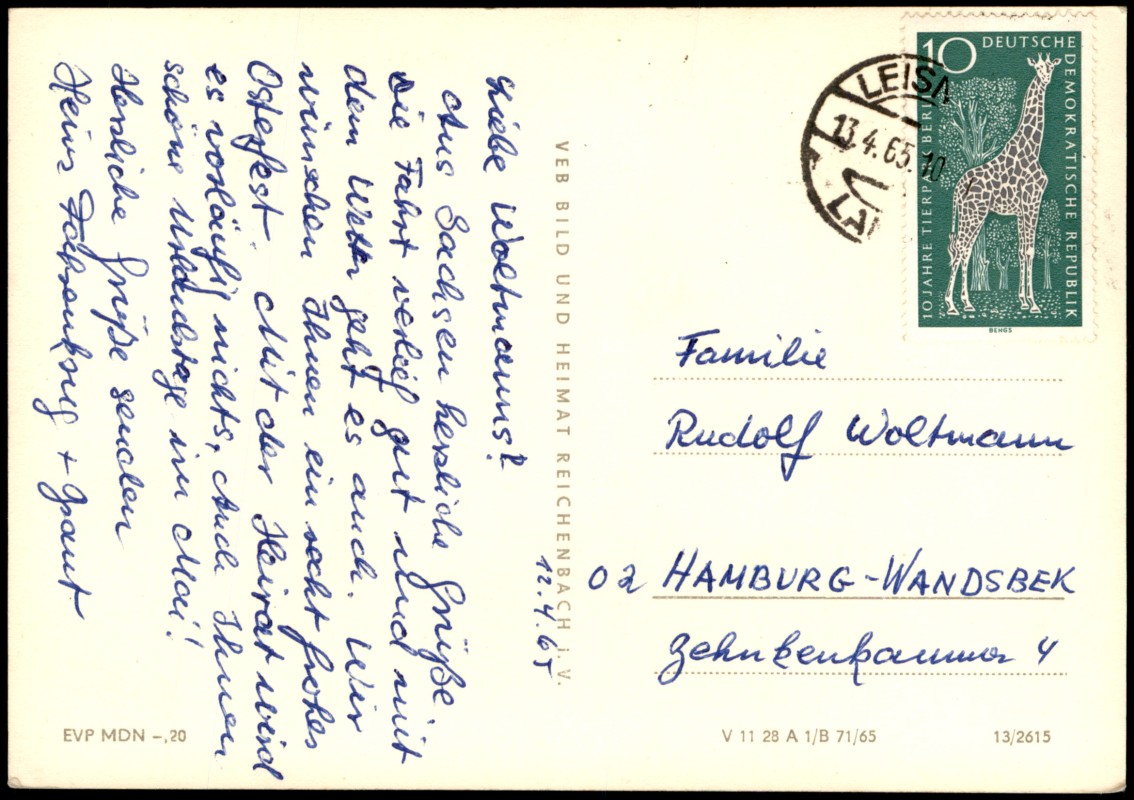 Liebe Woltmanns!
Aus Sachsen herzliche Grüße
Die Fahrt verlief gut und mit
dem Wetter geht es auch. Wir
wünschen Ihnen ein recht frohes
Osterfest. Mit der Heirat wird
es vorläufig nichts. Auch Ihnen
schöne Urlaubstage im Mai!
Herzliche Grüße senden
Heinz +
12.4.65
VEB BILD UND HEIMAT REICHENBACH I. V.
LEIS
13.4.65.10
10
DEUTSCHE
DEMOKRATISCHE REPUBLIK
10 JAHRE TIERP BERL
BENGS
Familie
Rudolf Woltmann
02 HAMBURG-WANDSBEK
4
EVP MDN –,20
V 11 28 A 1/B 71/65
13/2615